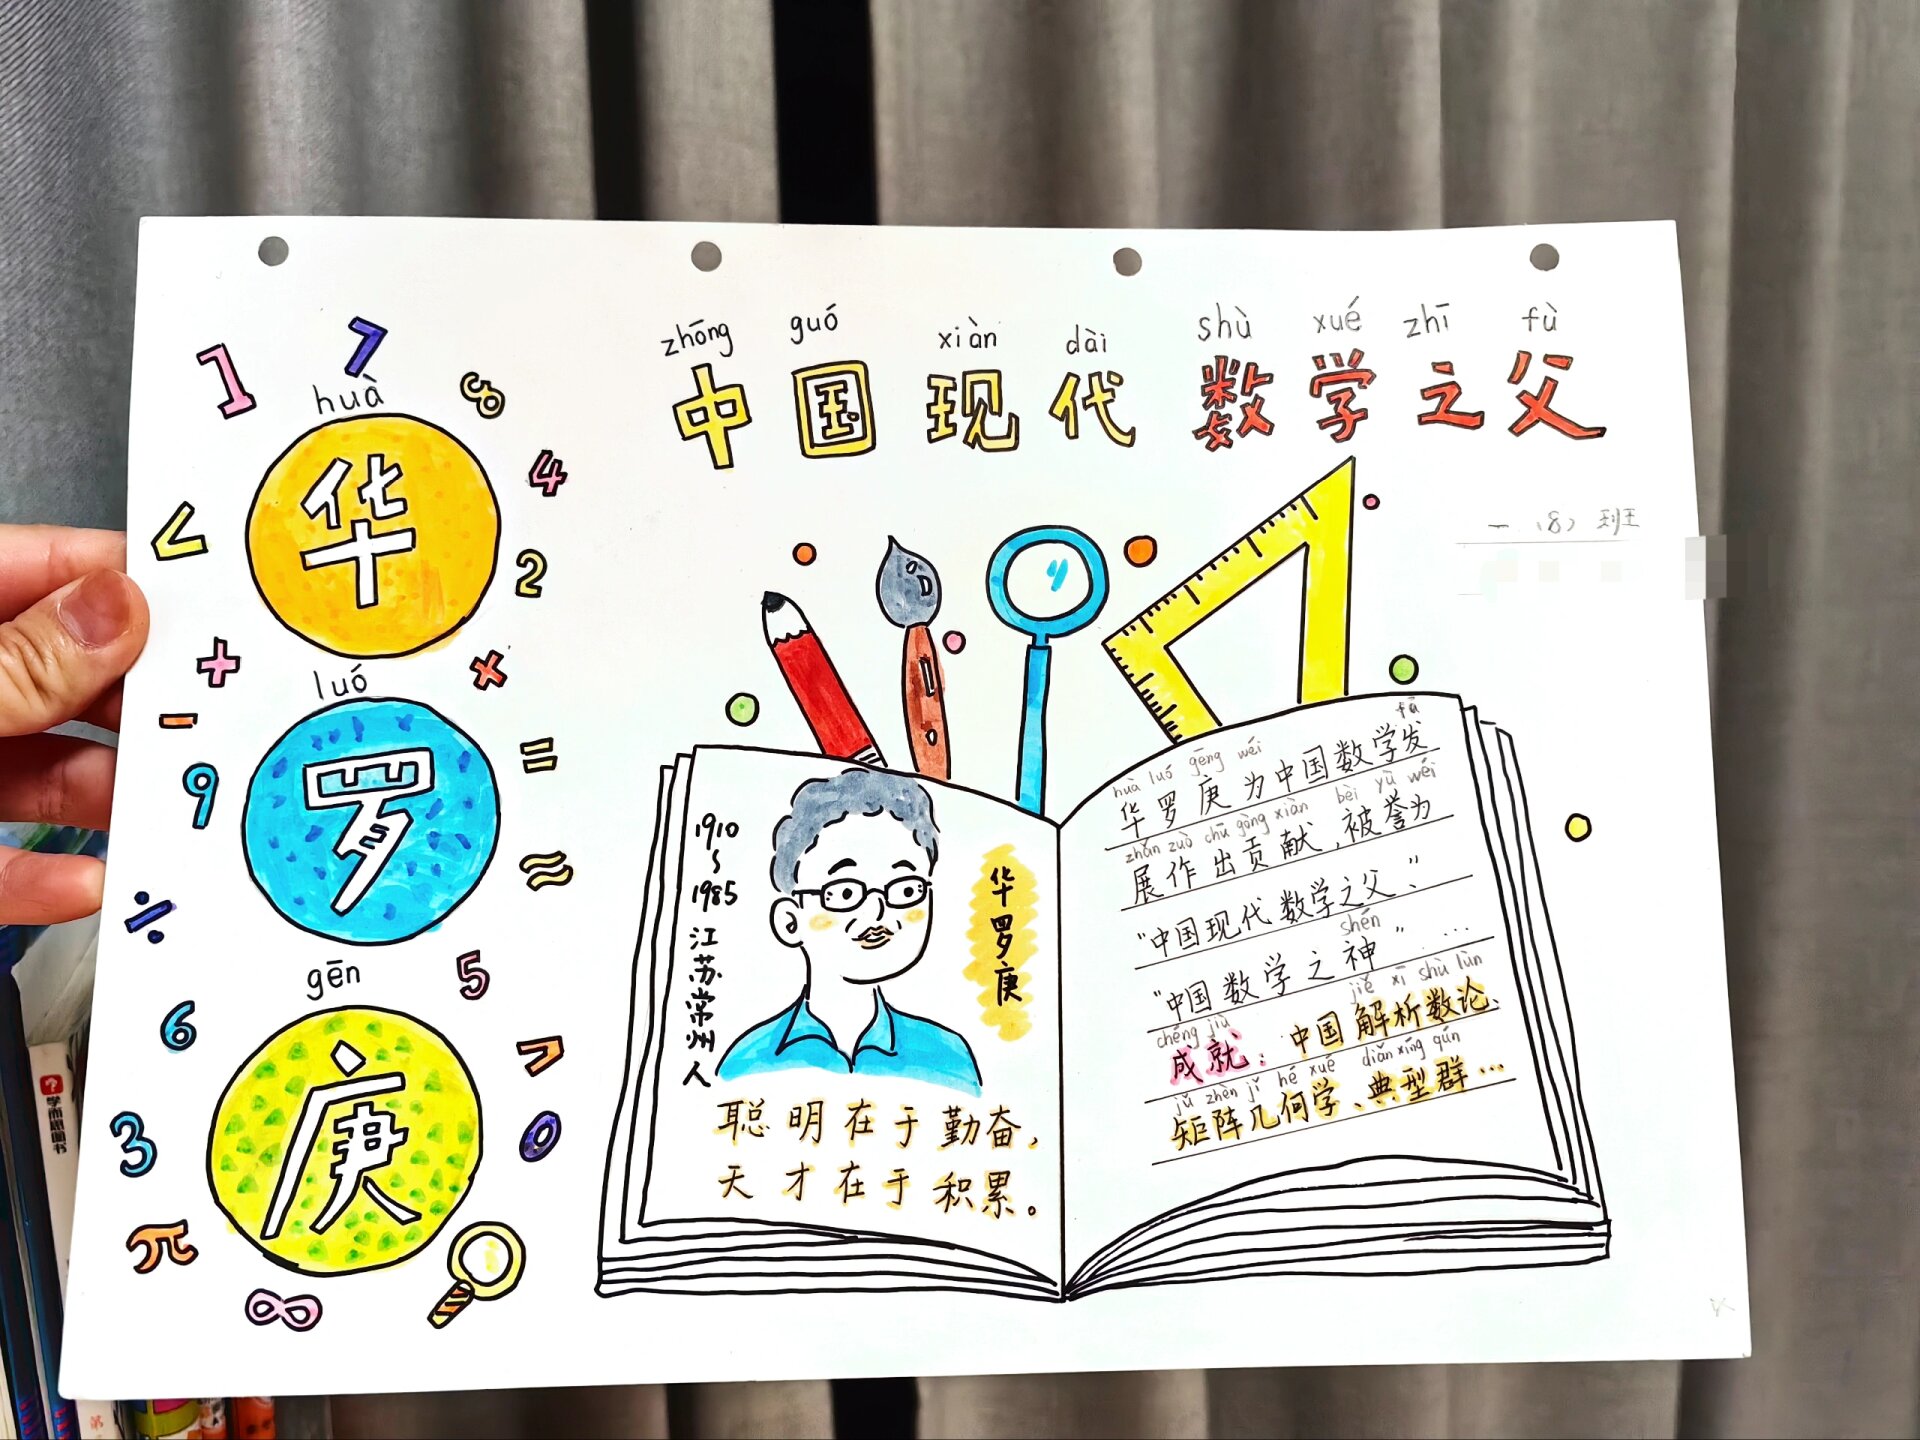 zhōng guó xiàn dài shù xué zhī fù
中国现代数学之父
一（8）班
1 7 8
huà
华
4
<
2
+ ×
luó
罗
-
=
9
≈
÷
gēn
庚
5
6
7
3
0
π
∞
1910
~
1985
江苏常州人
华罗庚
聪明在于勤奋，
天才在于积累。
fā
huà luó gēng wéi
华罗庚为中国数学发
zhǎn zuò chū gòng xiàn bèi yù wéi
展作出贡献，被誉为
“中国现代数学之父”、
shén
“中国数学之神”……
jiě xī shù lùn
chéng jiù
成就：中国解析数论、
jǔ zhèn jǐ hé xué diǎn xíng qún
矩阵几何学、典型群…
学而思图书
第一